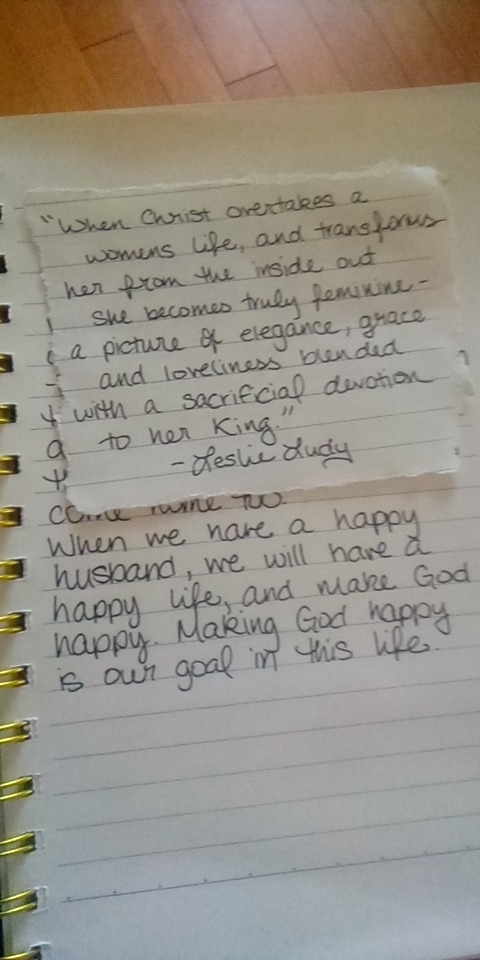 "When Christ overtakes a
womens life, and transforms
her from the inside out
she becomes truly feminine -
a picture of elegance, grace
and loveliness blended
with a sacrificial devotion
to her King."
- Leslie Ludy
come home too.
When we have a happy
husband, we will have a
happy life, and make God
happy. Making God happy
is our goal in this life.